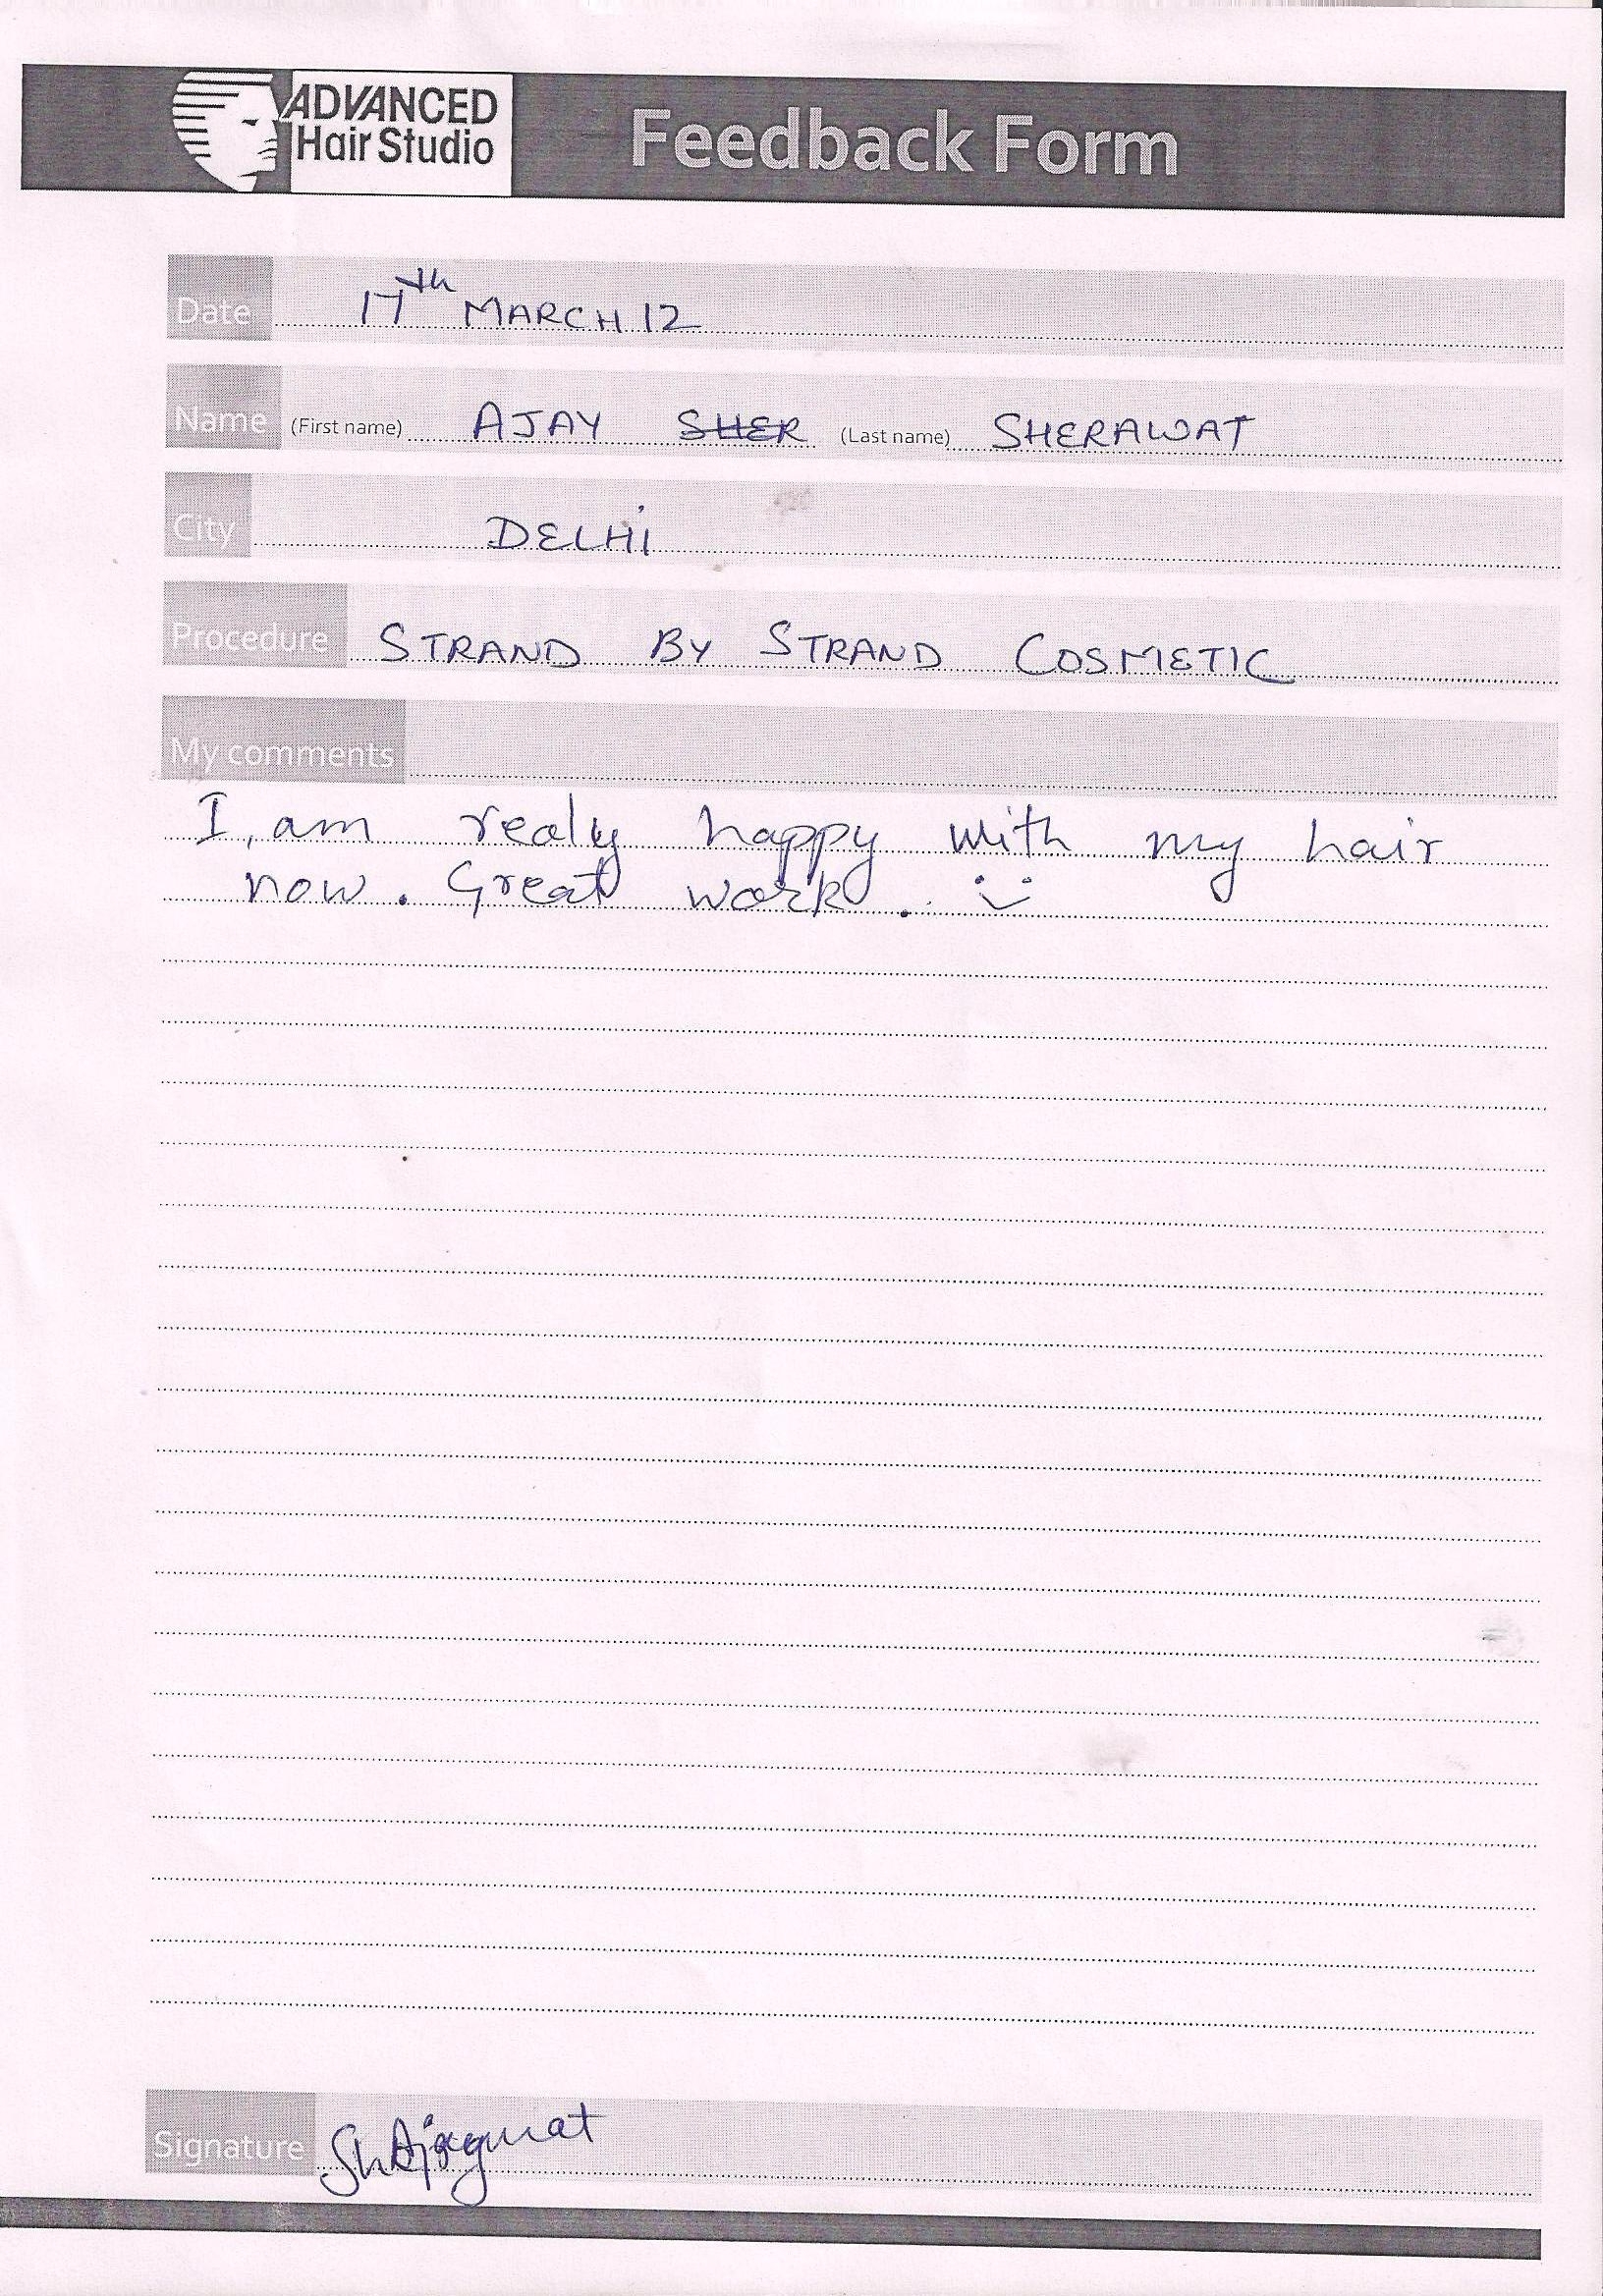 ADVANCED
Hair Studio
Feedback Form
Date 17th MARCH 12
Name (First name) AJAY SHER (Last name) SHERAWAT
City DELHi
Procedure STRAND BY STRAND COSMETIC
My comments
I am realy happy with my hair
now. Great work.
Signature